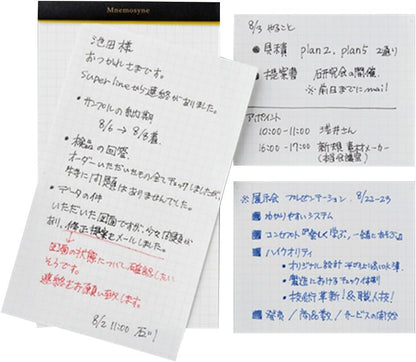 Mnemosyne
池田様
おつかれさまです。
super lineから連絡がありました。
・サンプルの納期
8/6 → 8/8着
・検品の回答.
オーダーいただいたもの全てチェックしましたが、
特に問題はありませんでした。
・データの件
いただいた図面ですが、少々問題が
あり、修正提案をメールしました。
図面の状態について確認したい
そうです。
連絡をお願い致します。
8/2 11:00 石川
8/3 やること
● 見積 plan2, plan5 2通り
● 提案書 研究会の開催.
※前日までにmail
アポイント
10:00-11:00 浅井さん
16:00-17:00 新規 素材メーカー
※展示会 プレゼンテーション. 8/22-23
分かりやすいシステム
コンセプト『楽しく学ぶ, 一緒にあそぶ』
ハイクオリティ
・オリジナル設計
・製造におけるチェック体制
・技術革新!&職人技!
発売 / 商品数 / サービスの開始